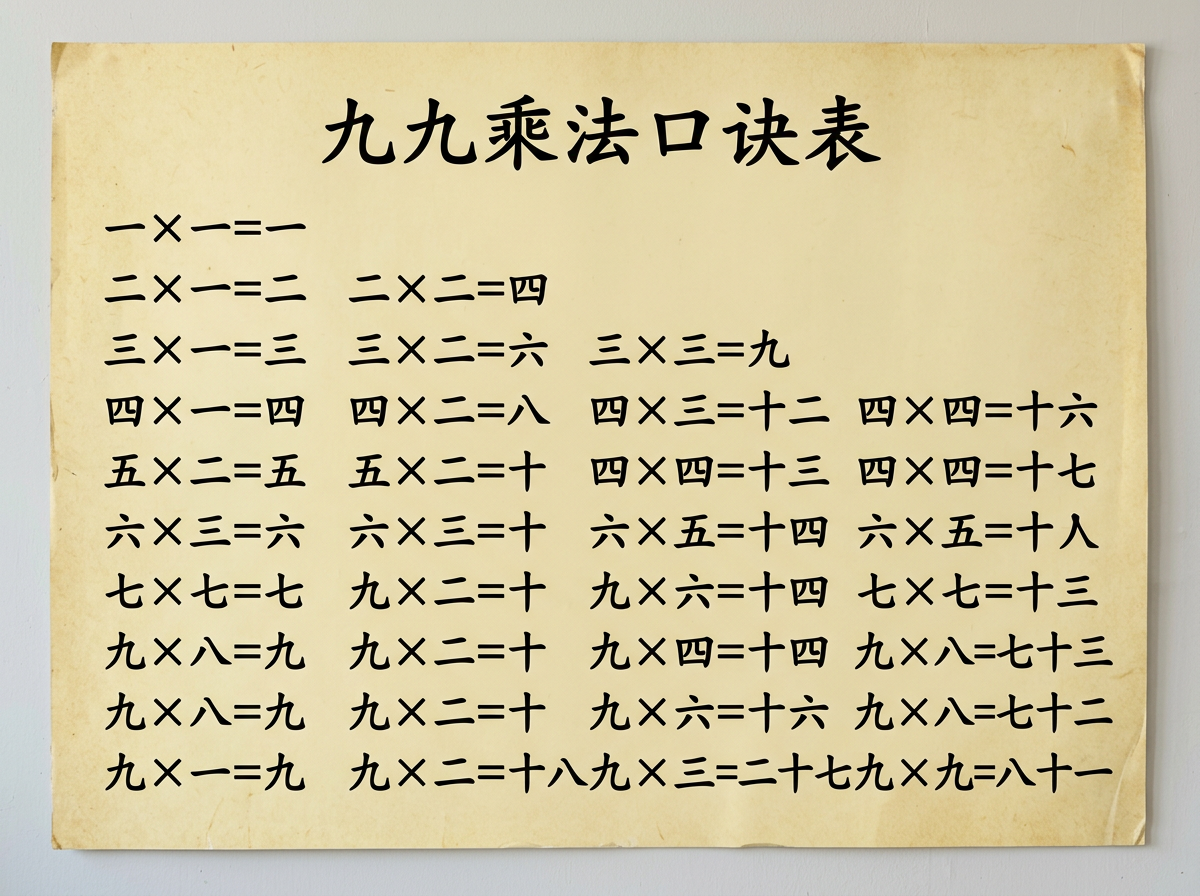 九九乘法口诀表
一×一=一
二×一=二 二×二=四
三×一=三 三×二=六 三×三=九
四×一=四 四×二=八 四×三=十二 四×四=十六
五×二=五 五×二=十 四×四=十三 四×四=十七
六×三=六 六×三=十 六×五=十四 六×五=十人
七×七=七 九×二=十 九×六=十四 七×七=十三
九×八=九 九×二=十 九×四=十四 九×八=七十三
九×八=九 九×二=十 九×六=十六 九×八=七十二
九×一=九 九×二=十八 九×三=二十七 九×九=八十一